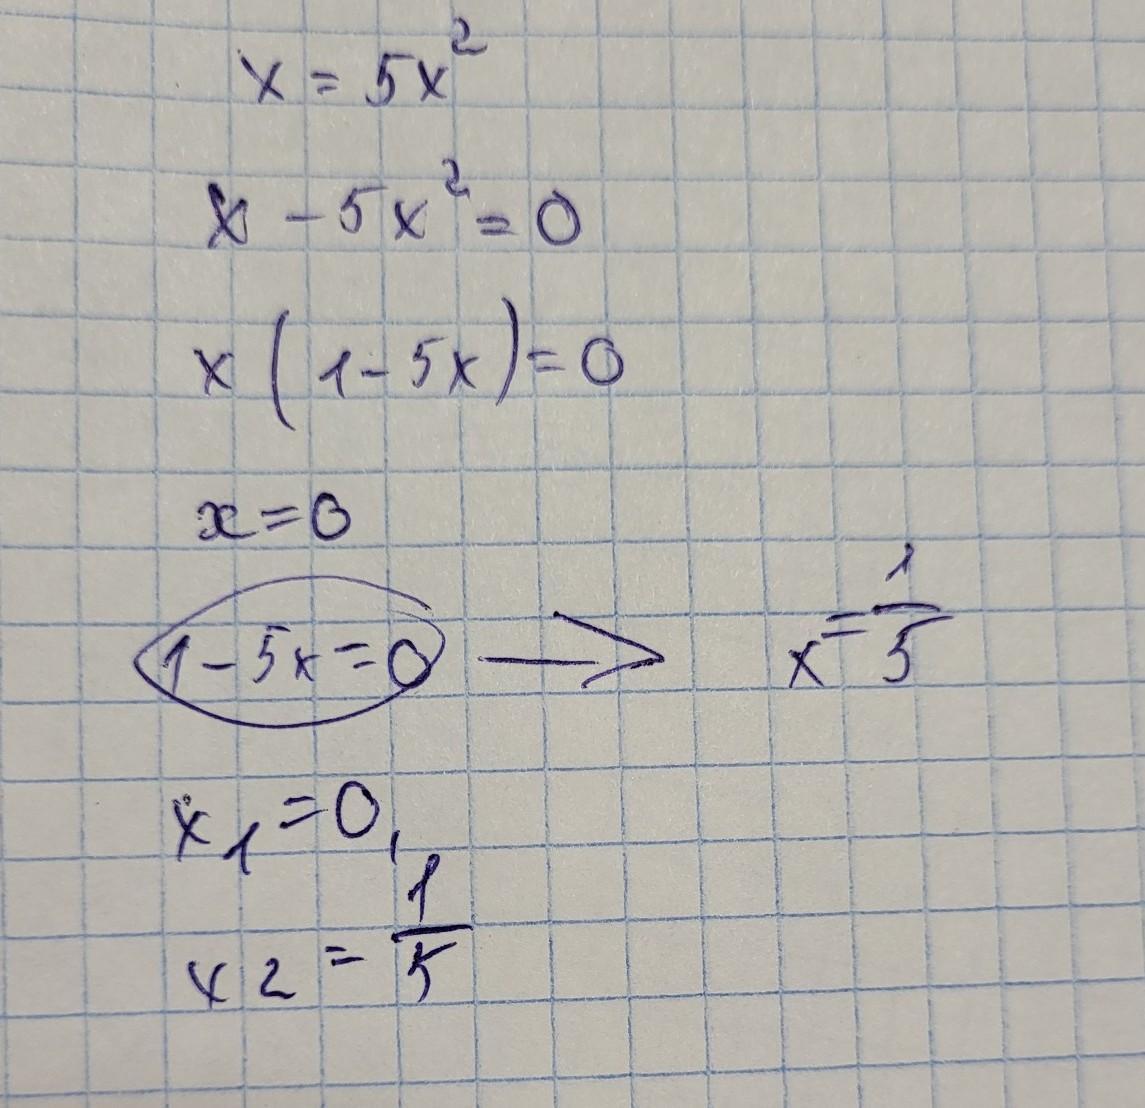 x = 5x²
x - 5x² = 0
x (1 - 5x) = 0
x = 0
1 - 5x = 0 → x = 1/5
x₁ = 0,
x2 = 1/5